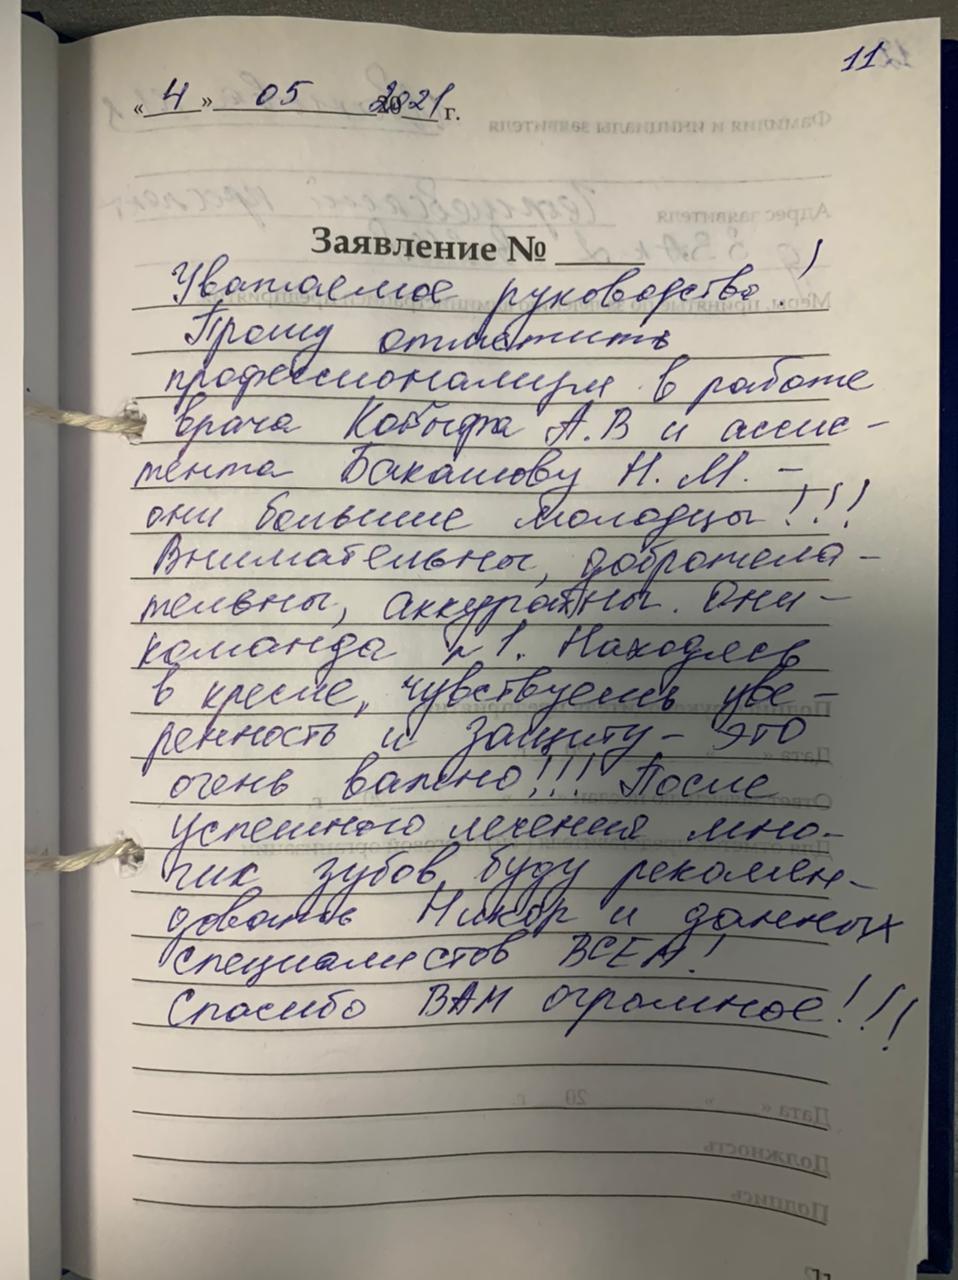 11
« 4 » 05 2021 г.
Заявление № ______
Уважаемое руководство!
Прошу отметить
профессионализм в работе
врача Кобыфа А.В и ассис-
тента Бакашову Н.М. -
они большие молодцы!!!
Внимательны, доброжела-
тельны, аккуратны. Они -
команда №1. Находясь
в кресле, чувствуешь уве-
ренность и защиту - это
очень важно!!! После
успешного лечения мно-
гих зубов, буду рекомен-
довать Никор и данных
специалистов ВСЕМ!
Спасибо ВАМ огромное!!!